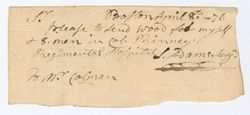 Sr. Boston April 8th - 76
please to send Wood for myself
& 8 men in Col. Phinneys
Regimental Hospital S. Adams Surgn
To Mr. Colman